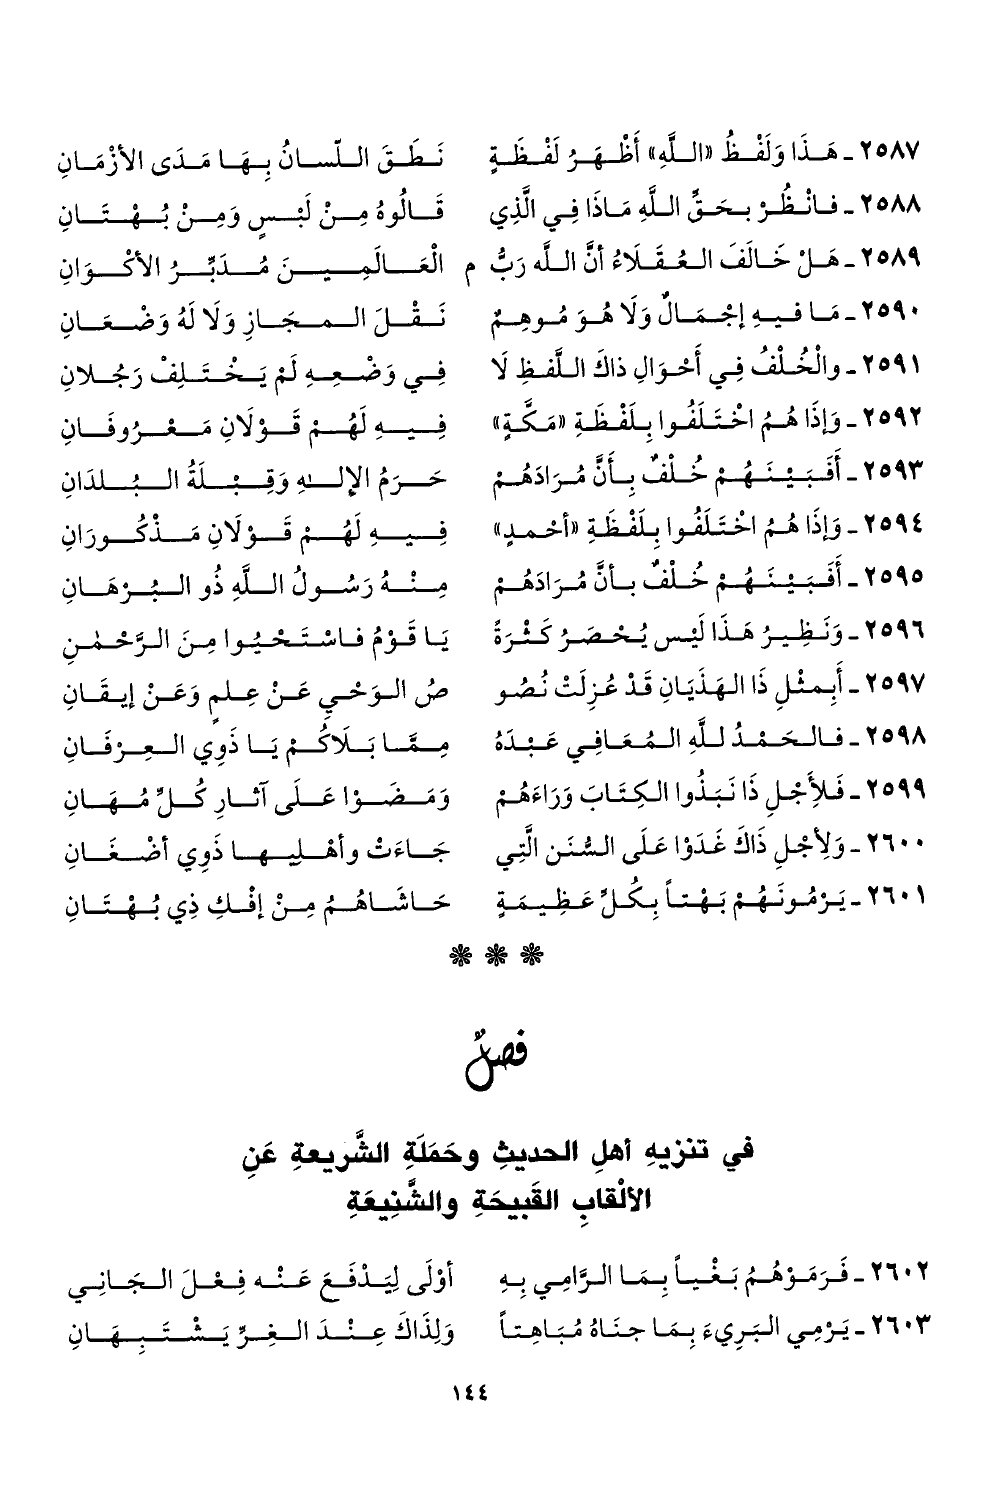 ٢٥٨٧ - هَـذَا وَلَفْـظُ «اللَّهِ» أَظْهَرُ لَفْظَةٍ نَطَقَ اللِّسانُ بِهَا مَدَى الأزْمَانِ
٢٥٨٨ - فانْظُرْ بحَقِّ اللهِ مَاذَا فِي الَّذِي قَالُوهُ مِنْ لَبْسٍ وَمِنْ بُهْتَانِ
٢٥٨٩ - هَلْ خَالَفَ العُقَلَاءُ أنَّ الله رَبُّ م الْعَالَمِينَ مُدَبِّرُ الأكْوَانِ
٢٥٩٠ - مَا فيهِ إجْمَالٌ وَلَا هُوَ مُوهِمٌ نَقْلَ المجَازِ وَلَا لَهُ وَضْعَانِ
٢٥٩١ - والْخُلْفُ فِي أَحْوَالِ ذاكَ اللَّفظِ لَا فِي وَضْعِهِ لَمْ يَخْتَلِفْ رَجُلانِ
٢٥٩٢ - وَإذَا هُمُ اخْتَلَفُوا بِلَفْظَةِ «مَكَّةٍ» فِيهِ لَهُمْ قَوْلَانِ مَعْرُوفَانِ
٢٥٩٣ - أَفَبَيْنَهُمْ خُلْفٌ بِأنَّ مُرَادَهُمْ حَرَمُ الإلٰهِ وَقِبْلَةُ البُلدَانِ
٢٥٩٤ - وَإذَا هُمُ اخْتَلَفُوا بِلَفْظَةِ «أحْمدٍ» فِيهِ لَهُمْ قَوْلَانِ مَذْكُورَانِ
٢٥٩٥ - أَفَبَيْنَهُمْ خُلْفٌ بأنَّ مُرَادَهُمْ مِنْهُ رَسُولُ اللَّهِ ذُو البُرْهَانِ
٢٥٩٦ - وَنَظِيرُ هَذَا لَيْس يُحْصَرُ كَثْرَةً يَا قَوْمُ فاسْتَحْيُوا مِنَ الرَّحْمٰنِ
٢٥٩٧ - أَبِمثْلِ ذَا الهَذَيَانِ قَدْ عُزِلَتْ نُصُو صُ الوَحْيِ عَنْ عِلمٍ وَعَنْ إيقَانِ
٢٥٩٨ - فالحَمْدُ للَّهِ المُعَافِي عَبْدَهُ مِمَّا بَلَاكُمْ يَا ذَوِي العِرْفَانِ
٢٥٩٩ - فَلأِجْلِ ذَا نَبَذُوا الكِتَابَ وَرَاءَهُمْ وَمَضَوْا عَلَى آثارِ كُلِّ مُهَانِ
٢٦٠٠ - وَلأِجْلِ ذَاكَ غَدَوْا عَلَى السُّنَنِ الَّتِي جَاءَتْ وأهْلِيها ذَوِي أضْغَانِ
٢٦٠١ - يَرْمُونَهُمْ بَهْتاً بِكُلِّ عَظِيمَةٍ حَاشَاهُمُ مِنْ إفْكِ ذِي بُهْتَانِ
فصلٌ
في تنزيهِ أهلِ الحديثِ وحَمَلَةِ الشَّريعةِ عَنِ
الألْقابِ القَبيحَةِ والشَّنِيعَةِ
٢٦٠٢ - فَرَمَوْهُمُ بَغْياً بِمَا الرَّامِي بِهِ أوْلَى لِيَدْفَعَ عَنْه فِعْلَ الجَانِي
٢٦٠٣ - يَرْمِي البَرِيءَ بِمَا جنَاهُ مُبَاهِتاً وَلِذَاكَ عِنْدَ الغِرِّ يَشْتَبِهَانِ
١٤٤